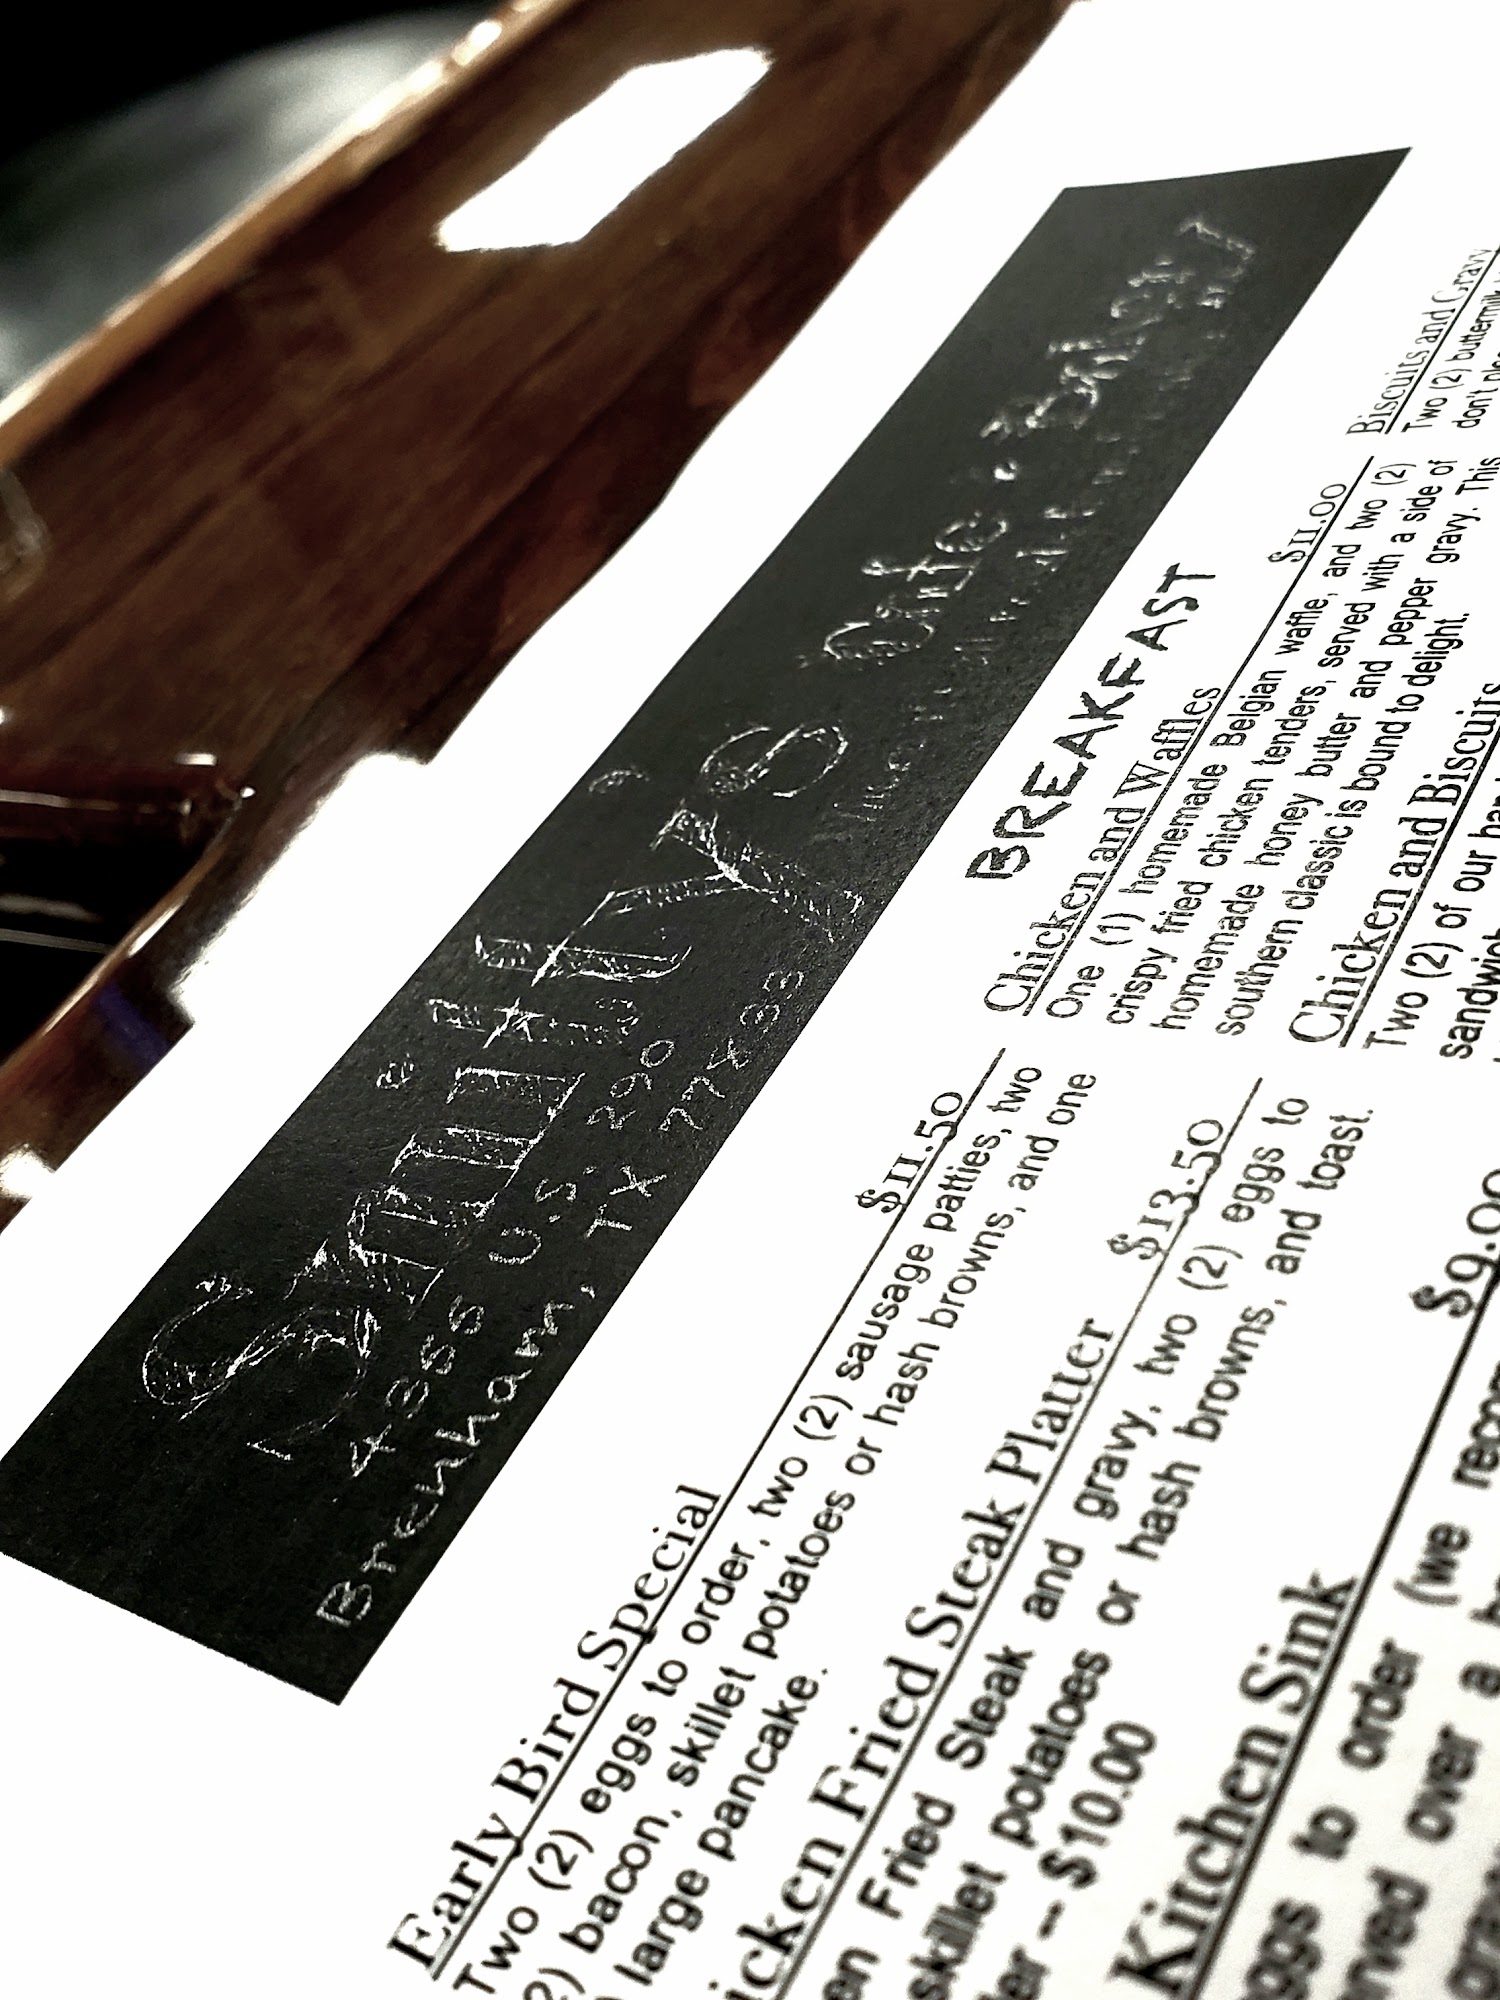 Smitty's Cafe · Bakery
4366 U.S 290
Brenham, TX 77833
BREAKFAST
Early Bird Special $11.50
Two (2) eggs to order, two (2) sausage patties, two
2) bacon, skillet potatoes or hash browns, and one
large pancake.
icken Fried Steak Platter $13.50
en Fried Steak and gravy, two (2) eggs to
skillet potatoes or hash browns, and toast.
er -- $10.00
Kitchen Sink $9.00
eggs to order (we
rved over a
Chicken and Waffles $11.00
One (1) homemade Belgian waffle, and two (2)
crispy fried chicken tenders, served with a side of
homemade honey butter and pepper gravy. This
southern classic is bound to delight.
Chicken and Biscuits
Two (2) of our
sandwich
Biscuits and Gravy
Two (2) buttermilk
don't